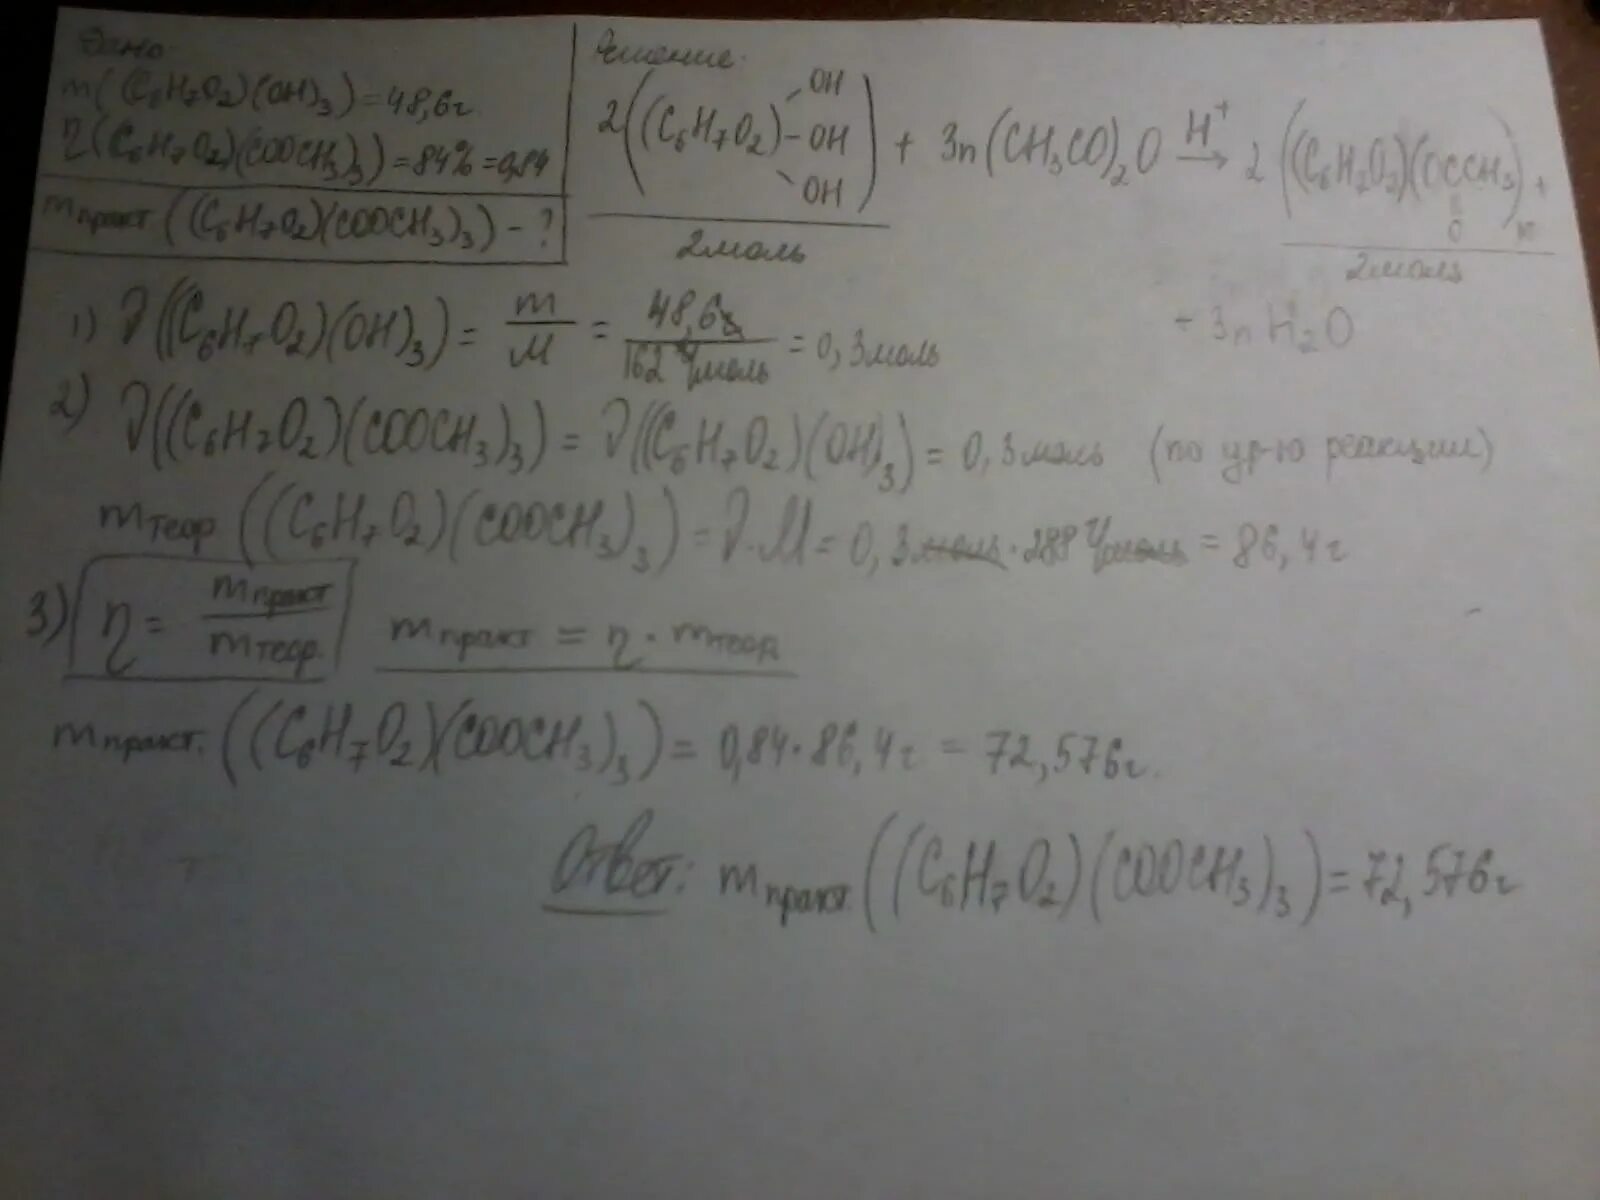 Дано:
m((C₆H₇O₂)(OH)₃)=48,6г.
η(C₆H₇O₂)(COOCH₃)₃)=84%=0,84
mпракт((C₆H₇O₂)(COOCH₃)₃) - ?
Решение:
2((C₆H₇O₂) -OH -OH -OH) + 3n(CH₃CO)₂O H⁺→ 2((C₆H₂O₂)(OCCH₃)n +
O
2моль
2моль
+ 3n H₂O
1) ν((C₆H₇O₂)(OH)₃) = m/M = 48,6г/162 г/моль = 0,3моль
2) ν((C₆H₇O₂)(COOCH₃)₃) = ν((C₆H₇O₂)(OH)₃) = 0,3моль (по ур-ю реакции)
mтеор((C₆H₇O₂)(COOCH₃)₃) = ν·M = 0,3моль·288 г/моль = 86,4г
3) η = mпракт/mтеор. mпракт = η · mтеор.
mпракт.((C₆H₇O₂)(COOCH₃)₃) = 0,84·86,4г = 72,576г.
Ответ: mпракт.((C₆H₇O₂)(COOCH₃)₃) = 72,576г